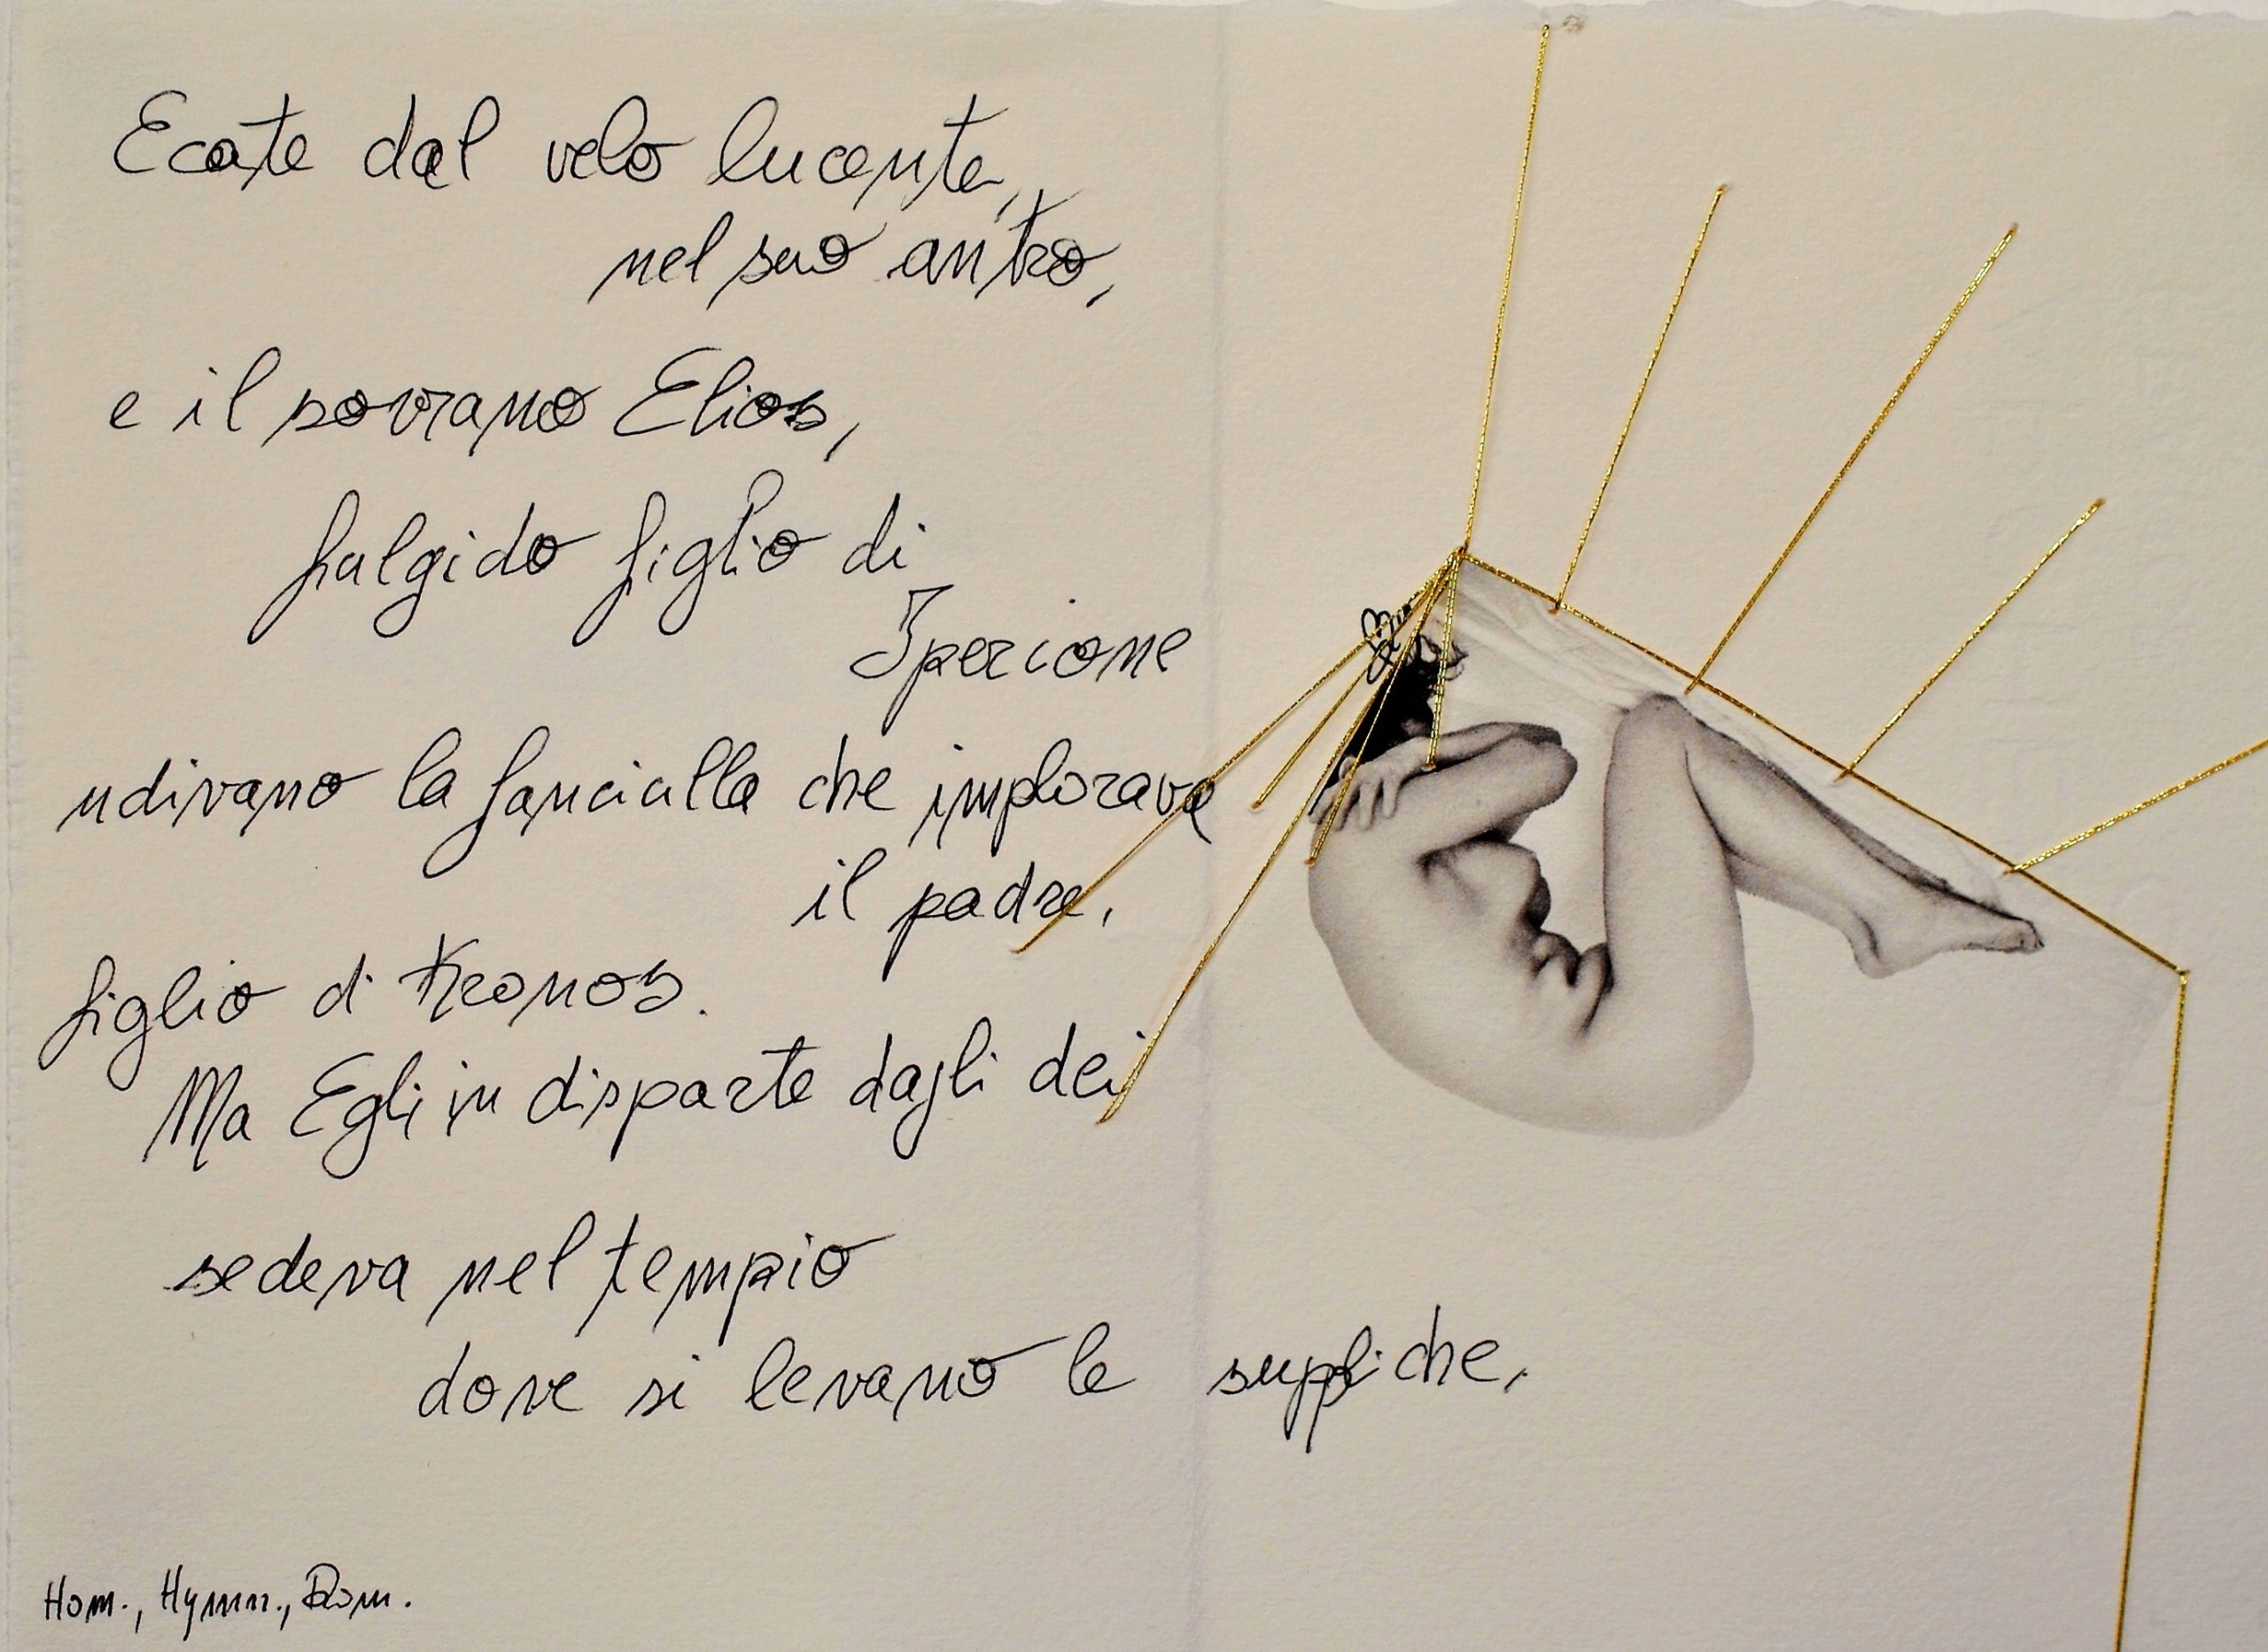 Ecate dal velo lucente,
nel suo antro,
e il sovrano Elios,
fulgido figlio di
Iperione
udivano la fanciulla che implorava
il padre,
figlio di Kronos.
Ma Egli in disparte dagli dei
sedeva nel tempio
dove si levano le suppliche,
Hom., Hymn., Dom.